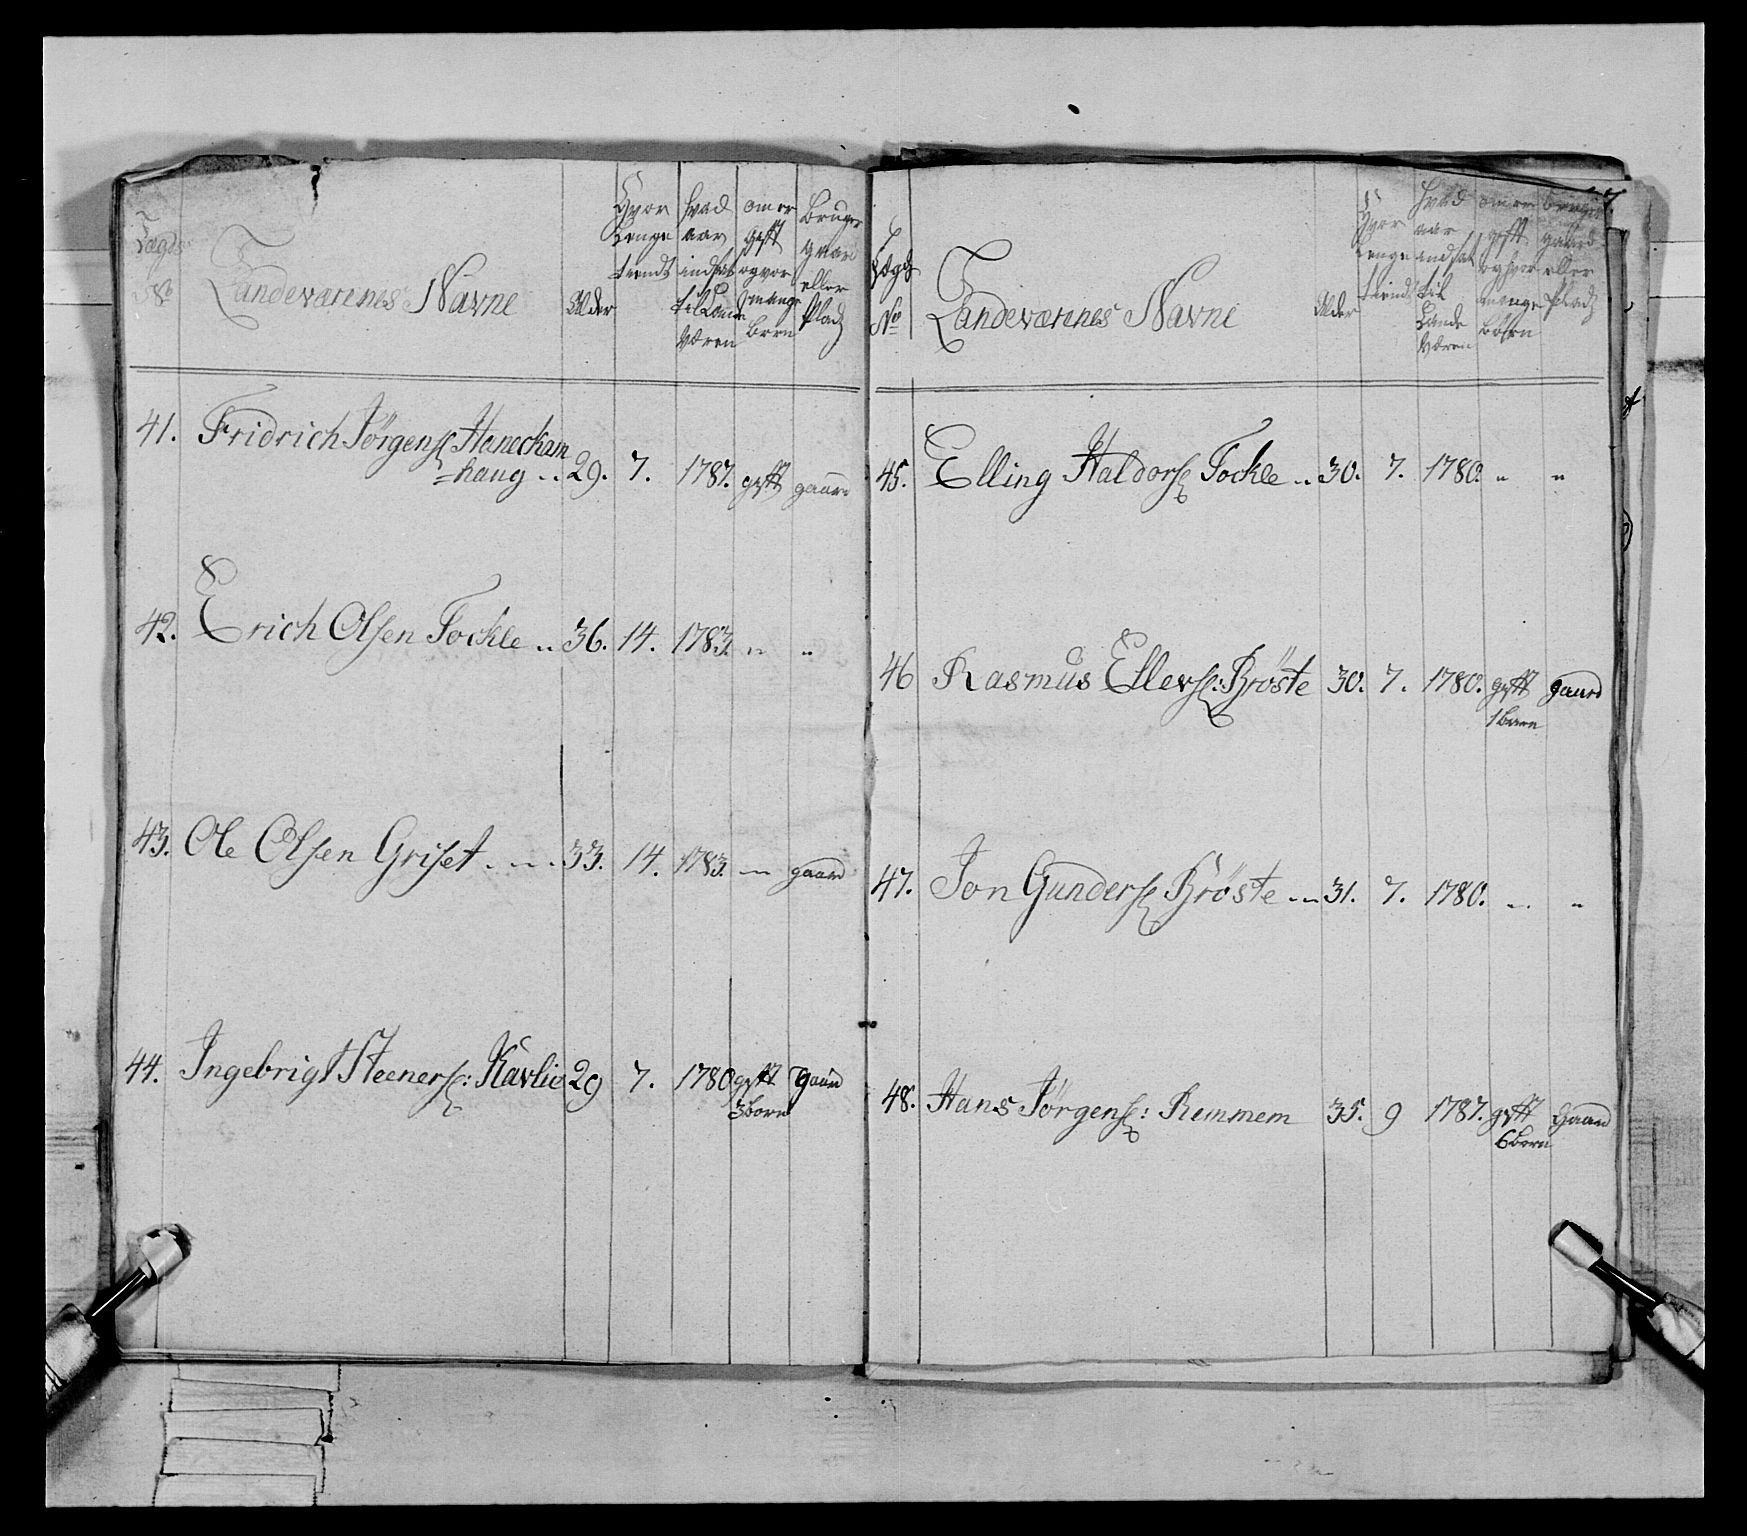 Lægds No
Landeværenes Navne
Alder
Hvor Lenge tiendt
hvad aar indsat til Lande Væren
om er gift og hvor mange børn
Bruger gaard eller Plads
41. Fridrich Jörgens: Haneckam
=haug .. 29. 7. 1787. gift gaard
42. Erich Olsen Fockle .. 36. 14. 1783. " "
43. Ole Olsen Griset . . . . 33. 14. 1783. " gaard
44. Ingebrigt Steeners: Kavlie 29 7. 1780 gift gaard
3 børn
Lægds No
Landeværenes Navne
Alder
Hvor Lenge tiendt
hvad aar indsat til Lande Væren
om er gift og hvor mange børn
bruger gaard eller Plads
45. Elling Haldors: Fockle .. 30. 7. 1780. " "
46 Rasmus Ellevs: Bröste 30. 7. 1780. gift gaard
1 barn
47. Jon Gunders: Bröste .. 31. 7. 1780. " "
48. Hans Jörgens: Remmem 35. 9 1787. gift Gaard
6 børn